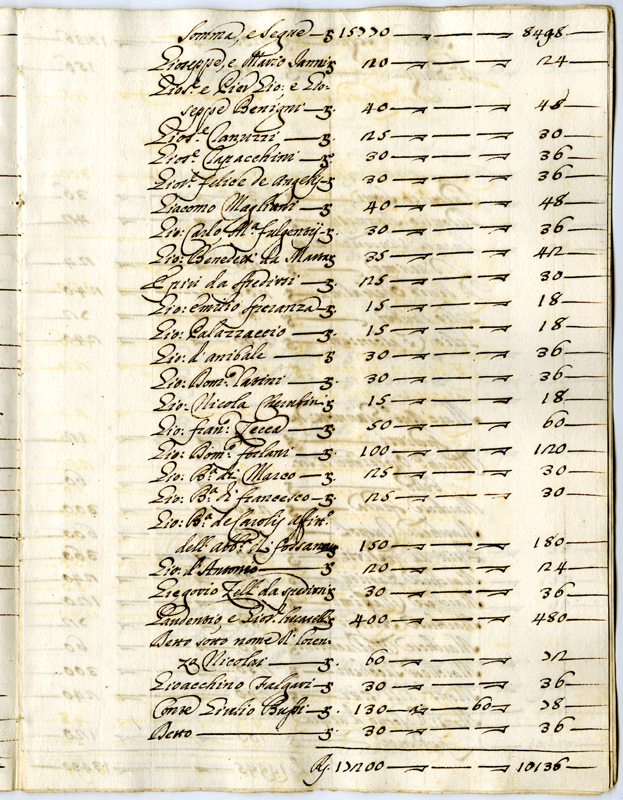 Somma, e segue — 15770 — 8498
Gioseppe, e Mario Janni 20 — 24
Gios.e e Pier Gio: e Gio-
seppe Benigni — 40 — 48
Gios.e Canuzzi — 25 — 30
Gios.e Capacchini — 30 — 36
Gios.e felice de Angelis 30 — 36
Giacomo Magliani — 40 — 48
Gio: Carlo M.a fulgentij 30 — 36
Gio: Benedett: da Marta 35 — 42
E piu da spedirsi — 25 — 30
Gio: Emilio speranza 15 — 18
Gio: Palazzaccio — 15 — 18
Gio: d'anibale — 30 — 36
Gio: Dom.o Pavini — 30 — 36
Gio: Nicola Cherubin 15 — 18
Gio: fran.o Zecca — 50 — 60
Gio: Dom.o forlani — 100 — 120
Gio: B.a di Marco — 25 — 30
Gio: B.a di francesco — 25 — 30
Gio: B.a de Carolis affitt.
dell' 150 — 180
Gio: d'Antonio — 20 — 24
Gregorio Zell: da spedirsi 30 — 36
Gaudentio, e Gios.e 400 — 480
Detto sotto nome di loren-
zo Nicolai — 60 — 72
Gioacchino Falgari — 30 — 36
Conte Giulio Bussi — 130 — 60 — 78
Detto — 30 — 36
17200 — 10136